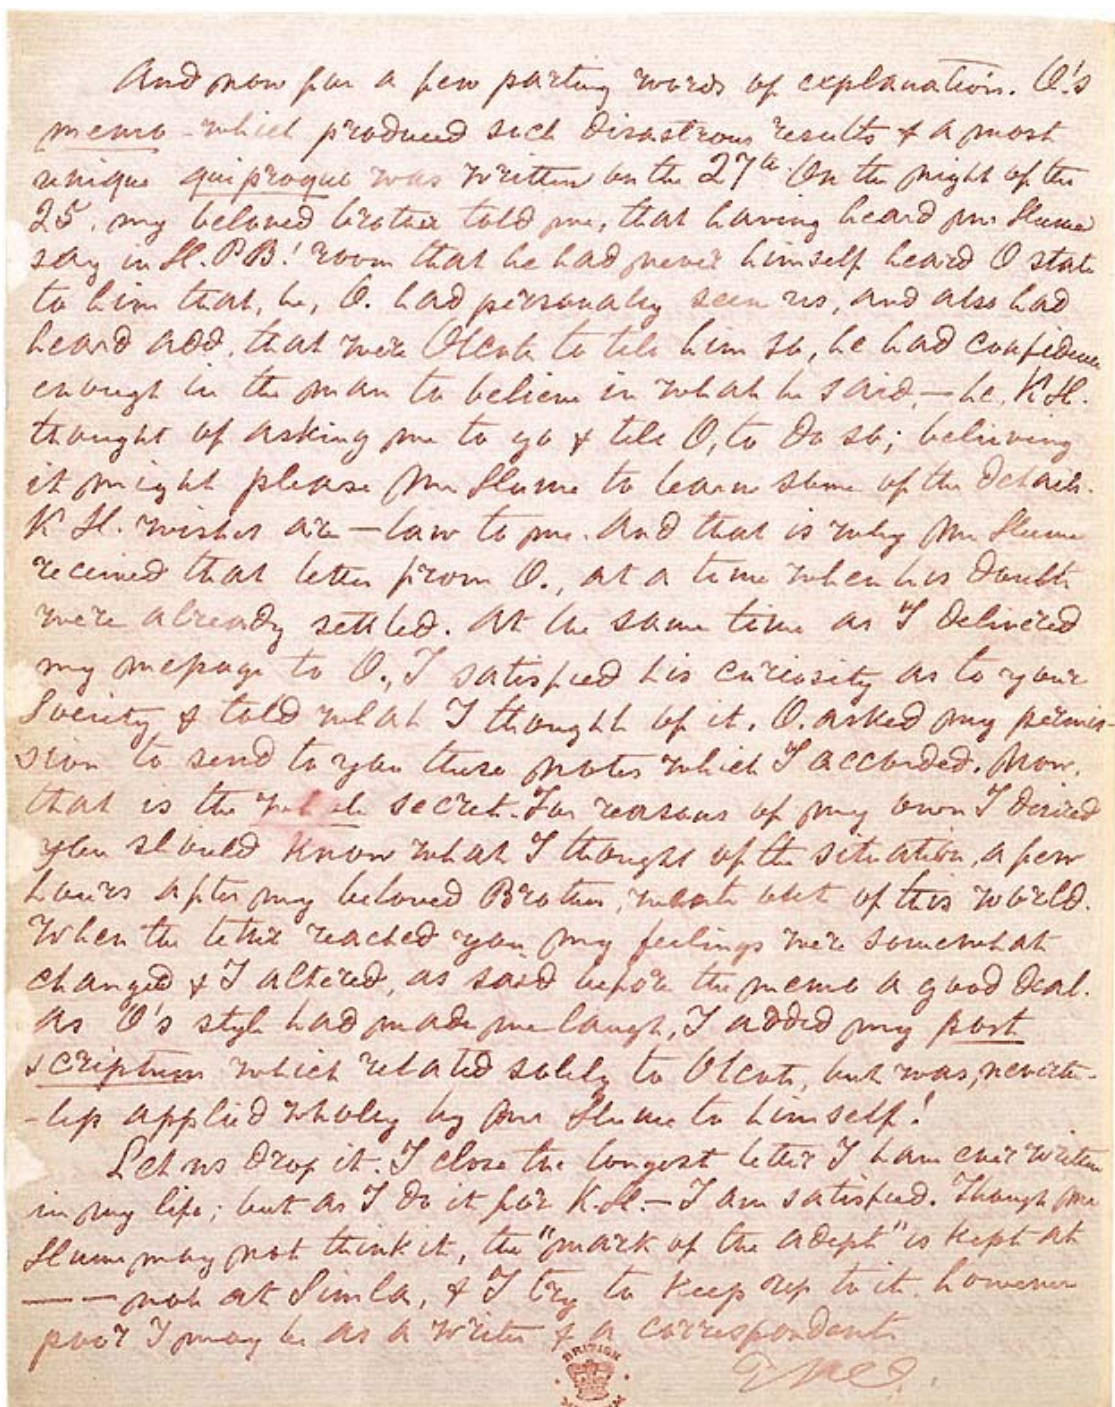 And now for a few parting words of explanation. O.'s
memo which produced such disastrous results & a most
unique quiproquo was written on the 27th. On the night of the
25, my beloved brother told me, that having heard Mr. Hume
say in H.P.B.' room that he had never himself heard O state
to him that, he, O. had personally seen us, and also had
heard add, that were Olcott to tell him so, he had confidence
enough in the man to believe in what he said — he, K.H.
thought of asking me to go & tell O, to do so; believing
it might please Mr Hume to learn some of the details.
K H. wishes are — law to me. And that is why Mr Hume
received that letter from O., at a time when his doubts
were already settled. At the same time as I delivered
my message to O., I satisfied his curiosity as to your
Society & told what I thought of it. O. asked my permis-
sion to send to you these notes which I accorded. Now,
that is the whole secret. For reasons of my own I desired
you should know what I thought of the situation, a few
hours after my beloved Brother, went out of this world.
When the letter reached you my feelings were somewhat
changed & I altered, as said before the memo a good deal.
As O's style had made me laugh, I added my post
scriptum which related solely to Olcott, but was, neverthe-
-less applied wholey by Mr Hume to himself!
Let us drop it. I close the longest letter I have ever written
in my life; but as I do it for K.H. — I am satisfied. Though Mr
Hume may not think it, the "mark of the adept" is kept at
— — not at Simla, & I try to keep up to it however
poor I may be as a writer & a correspondent
BRITISH